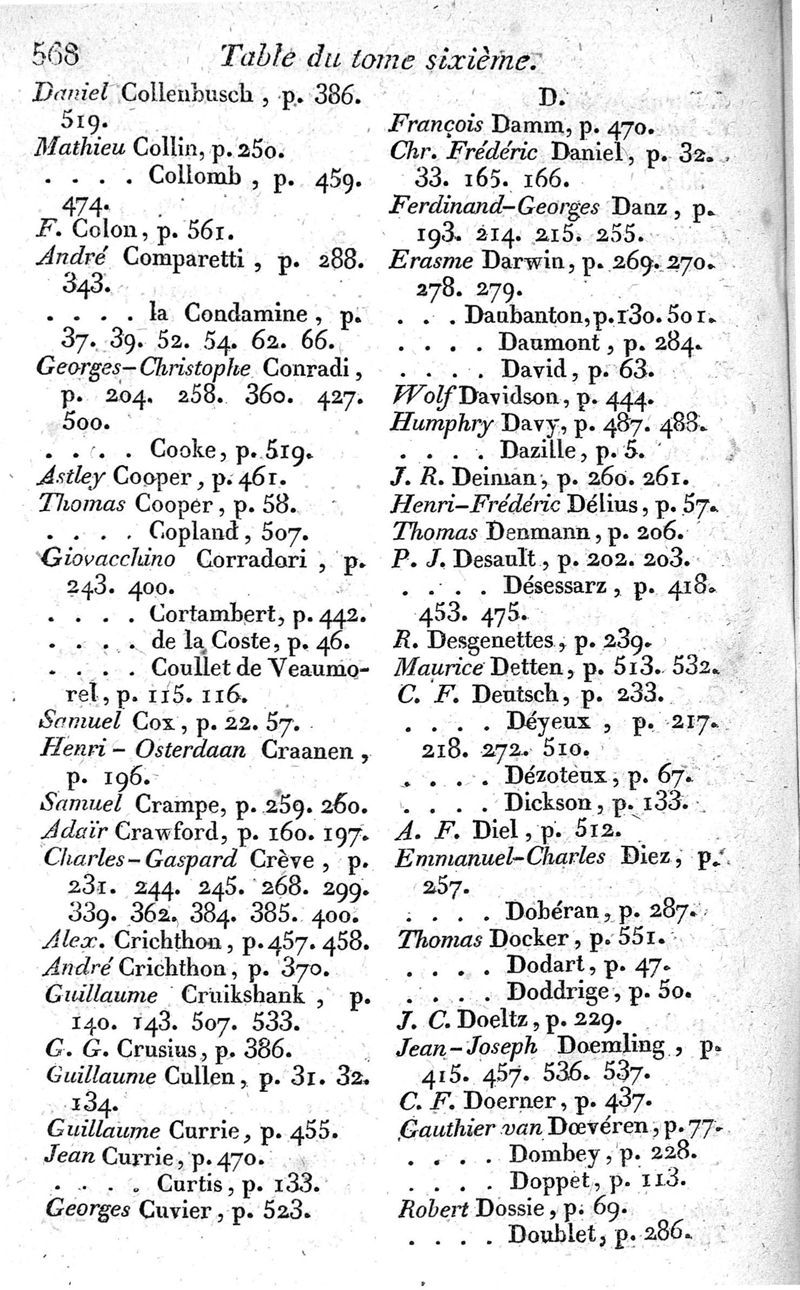 568 Table du tome sixième.
Daniel Collenbusch , p. 386.
519.
Mathieu Collin, p. 250.
. . . . Collomb , p. 459.
474.
F. Colon, p. 561.
André Comparetti , p. 288.
343.
. . . . la Condamine , p.
37. 39. 52. 54. 62. 66.
Georges-Christophe Conradi ,
p. 204. 258. 360. 427.
500.
. . . . Cooke, p. 519.
Astley Cooper , p. 461.
Thomas Cooper , p. 58.
. . . . Copland , 507.
Giovacchino Corradori , p.
243. 400.
. . . . Cortambert, p. 442.
. . . . de la Coste, p. 46.
. . . . Coullet de Veaumo-
rel , p. 115. 116.
Samuel Cox , p. 22. 57.
Henri - Osterdaan Craanen ,
p. 196.
Samuel Crampe, p. 259. 260.
Adaïr Crawford, p. 160. 197.
Charles-Gaspard Crève , p.
231. 244. 245. 268. 299.
339. 362. 384. 385. 400.
Alex. Crichthon , p. 457. 458.
André Crichthon , p. 370.
Guillaume Cruikshank , p.
140. 143. 507. 533.
G. G. Crusius , p. 386.
Guillaume Cullen , p. 31. 32.
134.
Guillaume Currie , p. 455.
Jean Currie , p. 470.
. . . . Curtis , p. 133.
Georges Cuvier , p. 523.
D.
François Damm, p. 470.
Chr. Frédéric Daniel , p. 32.
33. 165. 166.
Ferdinand-Georges Danz , p.
193. 214. 215. 255.
Erasme Darwin, p. 269. 270.
278. 279.
. . . Daubanton, p. 130. 501.
. . . . Daumont , p. 284.
. . . . David , p. 63.
Wolf Davidson , p. 444.
Humphry Davy, p. 487. 488.
. . . . Dazille , p. 5.
J. R. Deiman , p. 260. 261.
Henri-Frédéric Délius , p. 57.
Thomas Denmann , p. 206.
P. J. Desault , p. 202. 203.
. . . . Désessarz , p. 418.
453. 475.
R. Desgenettes , p. 239.
Maurice Detten, p. 513. 532.
C. F. Deutsch, p. 233.
. . . . Déyeux , p. 217.
218. 272. 510.
. . . . Dézoteux , p. 67.
. . . . Dickson , p. 133.
A. F. Diel , p. 512.
Emmanuel-Charles Diez , p.
257.
. . . . Dobéran , p. 287.
Thomas Docker , p. 551.
. . . . Dodart , p. 47.
. . . . Doddrige , p. 50.
J. C. Doeltz , p. 229.
Jean-Joseph Doemling , p.
415. 457. 536. 537.
C. F. Doerner , p. 437.
Gauthier van Dœvéren , p. 77.
. . . . Dombey , p. 228.
. . . . Doppet , p. 113.
Robert Dossie , p. 69.
. . . . Doublet , p. 286.